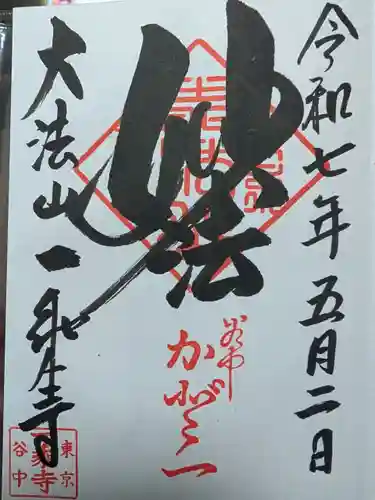 令和七年五月二日
妙法
谷中
かど一
大法山一乗寺
東京
谷中
一乗寺